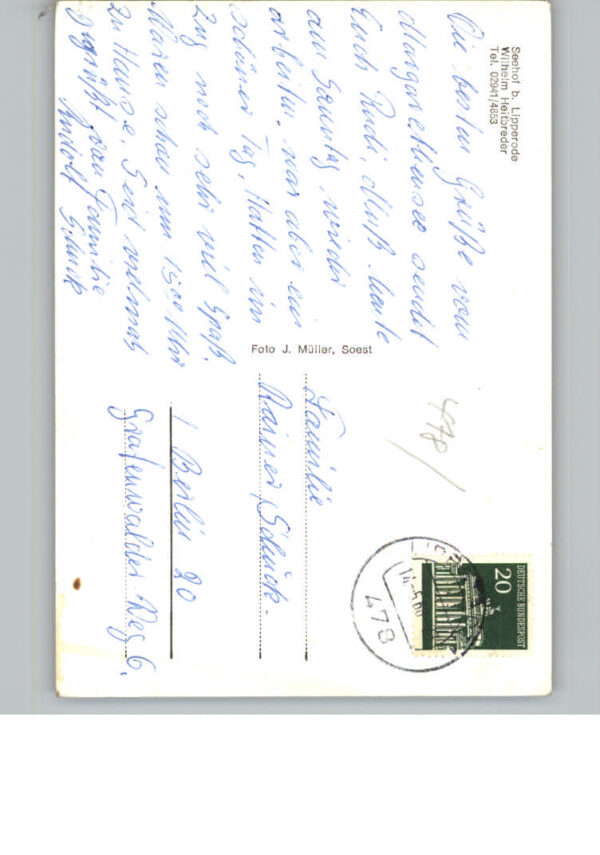 Seehof b. Lipperode
Wilhelm Heitbreder
Tel. 02941/4853
Die besten Grüße vom
sendet
Euch Rudi. Muß heute
am Sonntag wieder
arbeiten, war aber ein
schöner Tag. Hatten im
Zug noch sehr viel Spaß.
Waren schon um 1500 Uhr
zu Hause. Seid vielmals
gegrüßt von Familie
Rudolf Schuck
Foto J. Müller, Soest
Familie
Rainer Schuck
1 Berlin 20
Grafenwalder Weg 6.
478
20
DEUTSCHE BUNDESPOST
478